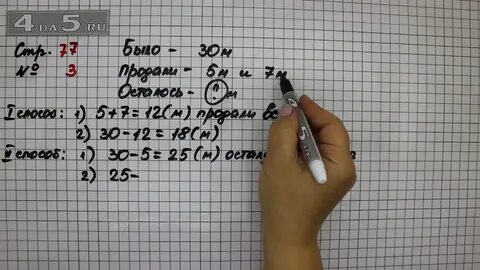 4DA5.RU
Стр. 77 Было - 30м
№ 3 Продали - 5м и 7м
Осталось - ? м
I способ: 1) 5+7=12(м) продали
2) 30-12=18(м)
II способ: 1) 30-5=25(м)
2) 25-
4DA5